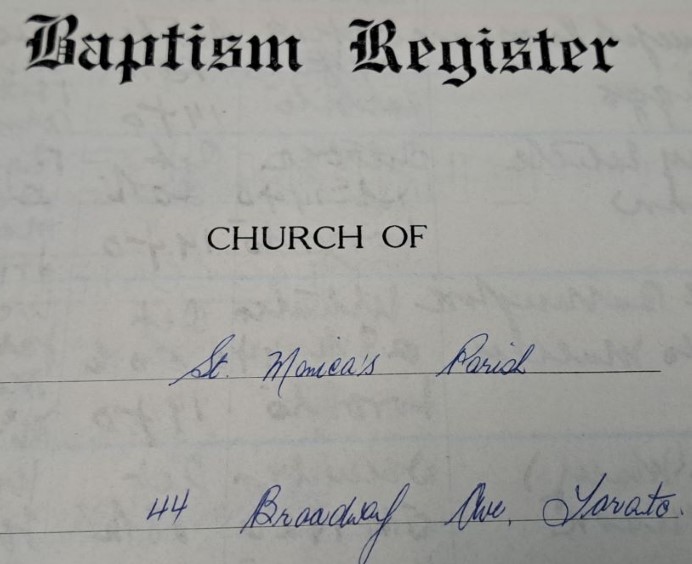 Baptism Register
CHURCH OF
St. Monica's Parish
44 Broadway Ave. Toronto.